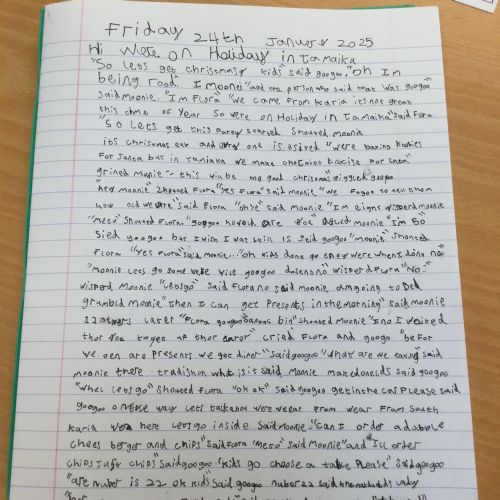 Friday 24th January 2025
Hi were on Holiday in tamaika
"So lets get christmasy kids" said googoo. "oh Im
being rood." I moonei" and the person who said that was googoo"
said moonie. "Im Flora" "we came from Karia its not great
this time of year so were on Holiday in Tamaika" said Flora
"So lets get this Party started shouted moonie
its chrismas eve and evry one is exised "were baking kookies
For Santa but in Tamiaka we make choclot
grined Monie - this will be my good chrismas" giggled googoo
"hey moonie" shouted Flora "yes Flora" said moonie "we Fogot to tell them
how old we are" said Flora "oh ye" said moonie "Im eight wisperd moonie
"me to" shouted Flora "googoo how old are you" asked moonie "Im 50"
sied googoo but I wish I was still 15 said googoo "moonie" shouted
Flora "yes Flora" said moonie... "oh kids dont go enywere when I dont no"
"moonie lets go some were vile googoo dosent no" wisperd Flora "No"
wisperd Moonie "lets go" said Flora no said moonie am going to bed
grumbld moonie "then I can get presents in the morning" said moonie
12 hours later "Flora googoo Santas bin" shouted Moonie "I no I waited
thor you to get up thor" cried Flora and googo "befor
we oen are presents we got diner" said googoo "what are we eating" said
moonie there tradishon what is it said moonie makedonelds said googoo
"whel lets go" shouted Flora "ok ok" said googoo get in the car please said
googoo on the way lets talk abou were wear from wear from South
karia were here lets go inside said moonie "Can I order a dable
chees berger and chips" said Flora "me to" said Moonie "and Ill order
chips Just chips" said googoo "kids go choose a table please" said googoo
"are nuber is 22 ok kids said googoo nuber 22 said the lady